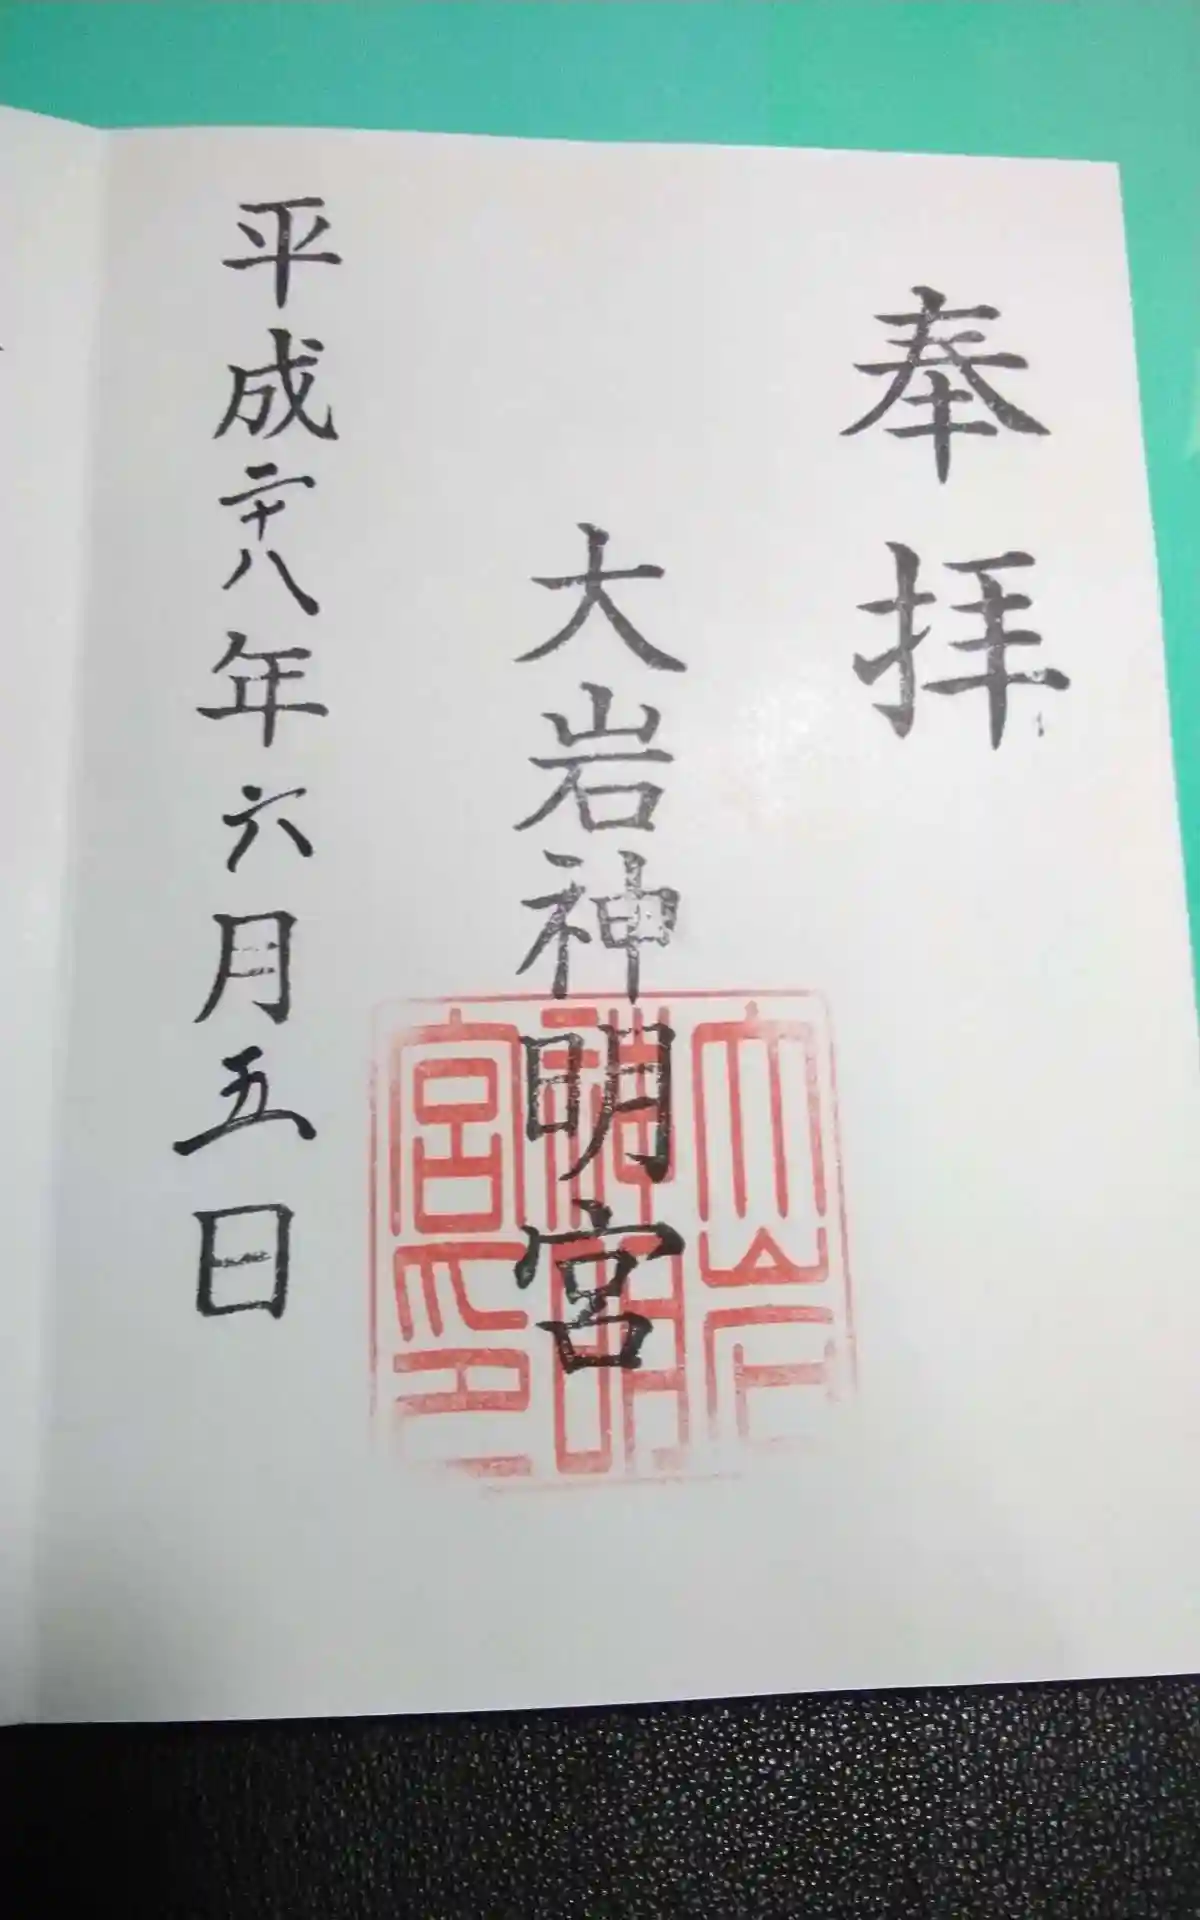 奉拝
大岩神明宮
平成二十八年六月五日
大岩
神明
宮之印